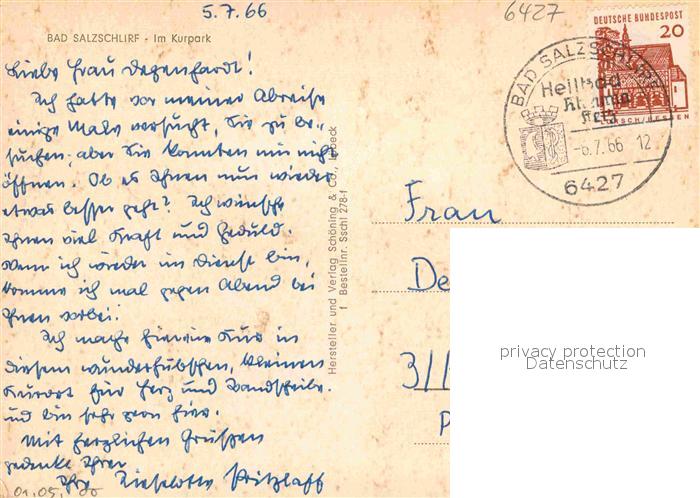 5.7.66
6427
BAD SALZSCHLIRF - Im Kurpark
Liebe Frau Degenhardt!
Ich hatte vor meiner Abreise
einige Male versucht, Sie zu be-
suchen, aber Sie konnten mir nicht
öffnen. Ob es Ihnen nun wieder
etwas besser geht? Ich wünsche
Ihnen viel Kraft und Geduld.
Wenn ich wieder im Dienst bin,
komme ich mal gegen Abend bei
Ihnen vorbei.
Ich mache hier eine Kur in
diesem wunderhübschen, kleinen
Kurort für Herz und Bandscheibe.
und bin sehr gern hier.
Mit herzlichen Grüßen
gedenke Ihrer
Ihre Lieselotte Pritzlaff
01.05.
Hersteller und Verlag Schöning & Co., Lübeck
f Bestellnr. Sschl 278-f
DEUTSCHE BUNDESPOST
20
LORSCH/HESSEN
BAD SALZSCHLIRF
Heilbad
Rheuma
Herz
-6.7.66 12
6427
Frau
De
3
privacy protection
Datenschutz